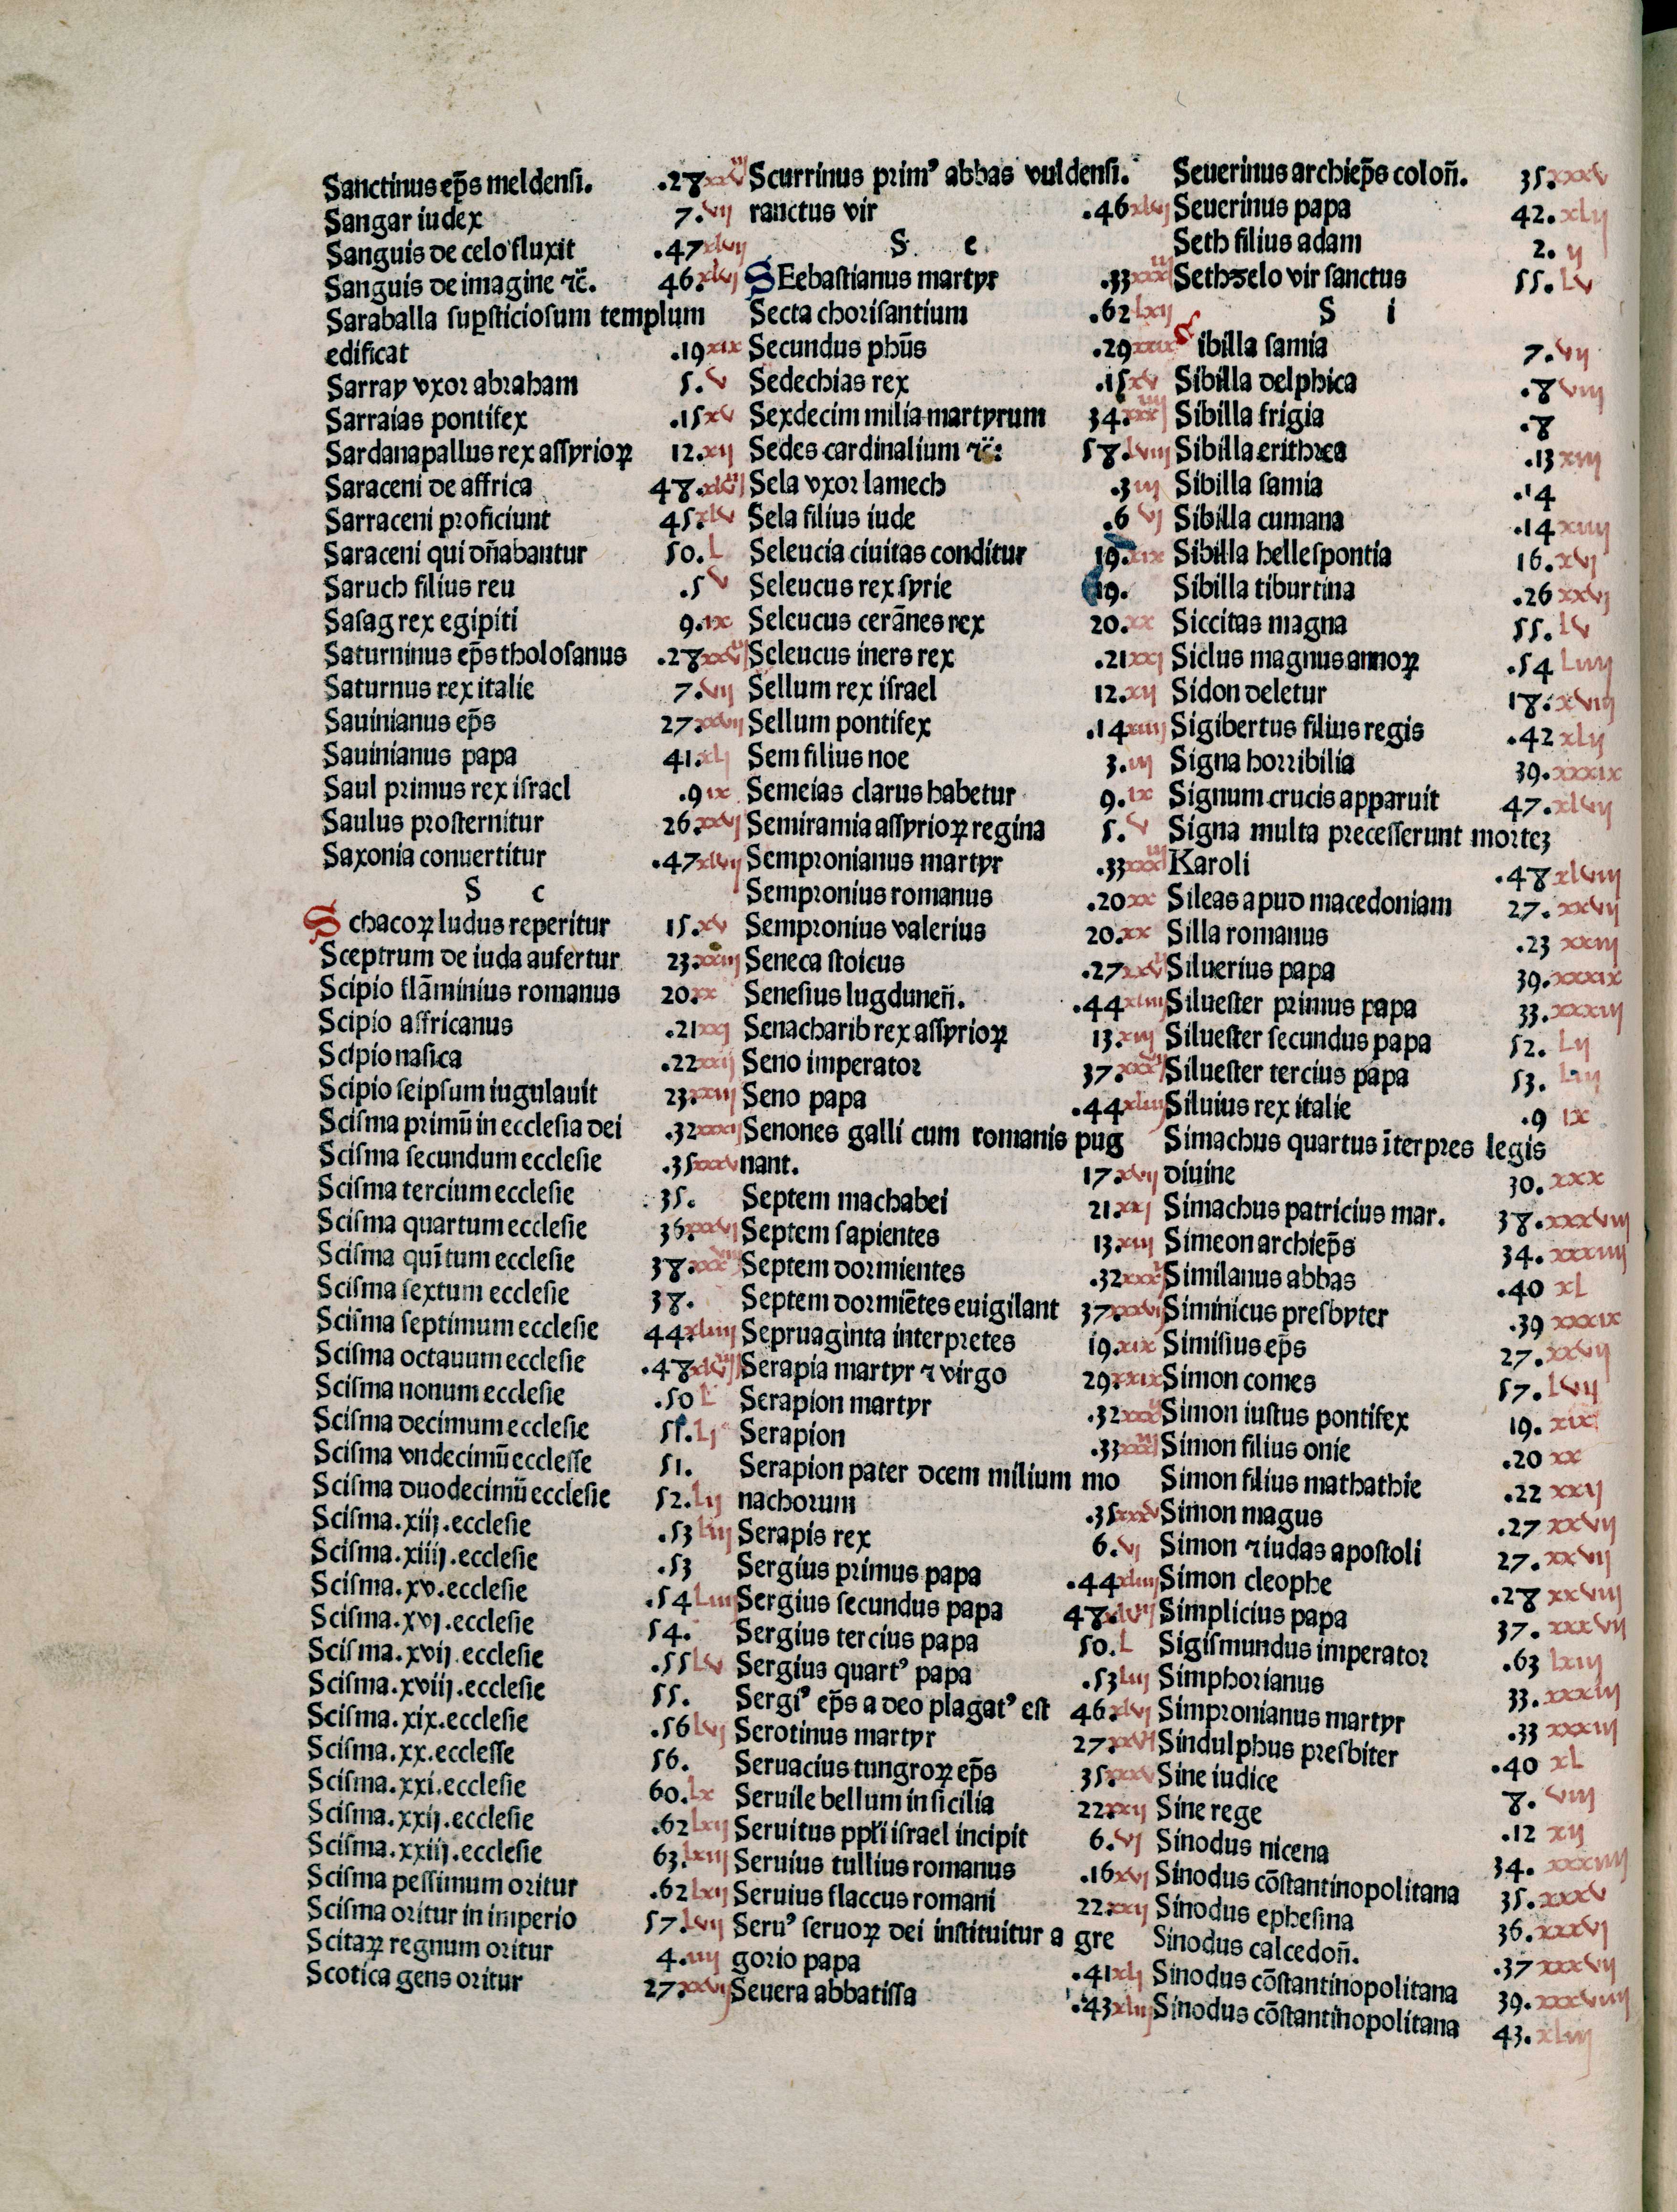 Sanctinus ep̄s meldensi. .28 xxviij
Sangar iudex 7. vij
Sanguis de celo fluxit .47 xlvij
Sanguis de imagine ⁊c̄. 46. xlvj
Saraballa sup̱sticiosum templum
edificat .19 xix
Sarray vxor abraham 5. v
Sarraias pontifex .15 xv
Sardanapallus rex assyrioꝝ 12. xij
Saraceni de affrica 48. xlviij
Sarraceni proficiunt 45. xlv
Saraceni qui dn̄abantur 50. L
Saruch filius reu .5 v
Sasag rex egipiti 9. ix
Saturninus ep̄s tholosanus .28 xxviij
Saturnus rex italie 7. vij
Sauinianus ep̄s 27. xxvij
Sauinianus papa 41. xlj
Saul primus rex israel .9 ix
Saulus prosternitur 26. xxvj
Saxonia conuertitur .47 xlvij
S c
Schacoꝝ ludus reperitur 15. xv
Sceptrum de iuda aufertur 23. xxiij
Scipio flāminius romanus 20. xx
Scipio affricanus .21 xxj
Scipio nasica .22 xxij
Scipio seipsum iugulauit 23. xxiij
Scisma primū in ecclesia dei .32 xxxij
Scisma secundum ecclesie .35 xxxv
Scisma tercium ecclesie 35.
Scisma quartum ecclesie 36. xxxvj
Scisma quītum ecclesie 38. xxxviij
Scisma sextum ecclesie 38.
Scisma septimum ecclesie 44. xliiij
Scisma octauum ecclesie .48 xlviij
Scisma nonum ecclesie .50 L
Scisma decimum ecclesie 51. Lj
Scisma vndecimū ecclesse 51.
Scisma duodecimū ecclesie 52. Lij
Scisma.xiij.ecclesie .53 liij
Scisma.xiiij.ecclesie .53
Scisma.xv.ecclesie .54 Liiij
Scisma.xvj.ecclesie 54.
Scisma.xvij.ecclesie .55 lv
Scisma.xviij.ecclesie 55.
Scisma.xix.ecclesie .56 lvj
Scisma.xx.ecclesse 56.
Scisma.xxi.ecclesie 60. lx
Scisma.xxij.ecclesie .62 lxij
Scisma.xxiij.ecclesie 63. lxiij
Scisma pessimum oritur .62 lxij
Scisma oritur in imperio 57. lvij
Scitaꝝ regnum oritur 4. iiij
Scotica gens oritur 27. xxvij
Scurrinus prim⁹ abbas vuldensi.
ranctus vir .46 xlvj
S e
SEebastianus martyr .33 xxxiij
Secta chorisantium .62 lxij
Secundus phūs .29 xxix
Sedechias rex .15 xv
Sexdecim milia martyrum 34. xxxiiij
Sedes cardinalium ⁊c̄: 58. lviij
Sela vxor lamech .3 iij
Sela filius iude .6 vj
Seleucia ciuitas conditur 19. xix
Seleucus rex syrie 19.
Seleucus cerānes rex 20. xx
Seleucus iners rex .21 xxj
Sellum rex israel 12. xij
Sellum pontifex .14 xiiij
Sem filius noe 3. iij
Semeias clarus habetur 9. ix
Semiramia assyrioꝝ regina 5. v
Sempronianus martyr .33 xxxiij
Sempronius romanus .20 xx
Sempronius valerius 20. xx
Seneca stoicus .27 xxvij
Senesius lugdunen̄. .44 xliiij
Senacharib rex assyrioꝝ 13. xiij
Seno imperator 37. xxxvij
Seno papa .44 xliiij
Senones galli cum romanis pug
nant. 17. xvij
Septem machabei 21. xxj
Septem sapientes 13. xiij
Septem dormientes .32 xxxij
Septem dormiētes euigilant 37. xxxvij
Sepruaginta interpretes 19. xix
Serapia martyr ⁊ virgo 29. xxix
Serapion martyr .32 xxxij
Serapion .33 xxxiij
Serapion pater dcem milium mo
nachorum .35 xxxv
Serapis rex 6. vj
Sergius primus papa .44 xliiij
Sergius secundus papa 48. xlviij
Sergius tercius papa 50. L
Sergius quart⁹ papa .53 liij
Sergi⁹ ep̄s a deo plagat⁹ est 46. xlvj
Serotinus martyr 27. xxvij
Seruacius tungroꝝ ep̄s 35. xxxv
Seruile bellum in sicilia 22. xxij
Seruitus ppłi israel incipit 6. vj
Seruius tullius romanus .16 xvj
Seruius flaccus romani 22. xxij
Seru⁹ seruoꝝ dei instituitur a gre
gorio papa .41 xlj
Seuera abbatissa .43 xliij
Seuerinus archiep̄s colon̄. 35. xxxv
Seuerinus papa 42. xlij
Seth filius adam 2. ij
Sethzelo vir sanctus 55. Lv
S i
Sibilla samia 7. vij
Sibilla delphica .8 viij
Sibilla frigia .8
Sibilla erithrea .13 xiij
Sibilla samia .14
Sibilla cumana .14 xiiij
Sibilla hellespontia 16. xvj
Sibilla tiburtina .26 xxvj
Siccitas magna 55. lv
Siclus magnus annoꝝ .54 Liiij
Sidon deletur 18. xviij
Sigibertus filius regis .42 xlij
Signa horribilia 39. xxxix
Signum crucis apparuit 47. xlvij
Signa multa precesserunt morteꝫ
Karoli .48 xlviij
Sileas apud macedoniam 27. xxvij
Silla romanus .23 xxiij
Siluerius papa 39. xxxix
Siluester primus papa 33. xxxiij
Siluester secundus papa 52. Lij
Siluester tercius papa 53. Liij
Siluius rex italie .9 ix
Simachus quartus īterpres legis
diuine 30. xxx
Simachus patricius mar. 38. xxxviij
Simeon archiep̄s 34. xxxiiij
Similanus abbas .40 xL
Siminicus presbyter .39 xxxix
Simisius ep̄s 27. xxvij
Simon comes 57. lvij
Simon iustus pontifex 19. xix
Simon filius onie .20 xx
Simon filius mathathie .22 xxij
Simon magus .27 xxvij
Simon ⁊ iudas apostoli 27. xxvij
Simon cleophe .28 xxviij
Simplicius papa 37. xxxvij
Sigismundus imperator .63 lxiij
Simphorianus 33. xxxiij
Simpronianus martyr .33 xxxiij
Sindulphus presbiter .40 xL
Sine iudice 8. viij
Sine rege .12 xij
Sinodus nicena 34. xxxiiij
Sinodus cōstantinopolitana 35. xxxv
Sinodus ephesina 36. xxxvj
Sinodus calcedon̄. .37 xxxvij
Sinodus cōstantinopolitana 39. xxxviiij
Sinodus cōstantinopolitana 43. xliij